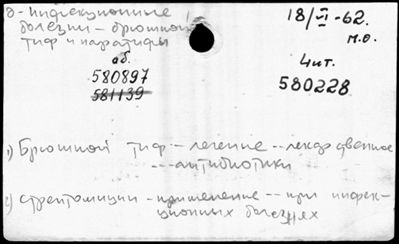 д-инфекционные
болезни - брюшной
тиф и паратифы
аб.
580897
581139
18/VI-62.
м.о.
чит.
580228
1) Брюшной тиф -- лечение -- лекарственное
-- антибиотики
2) стрептомицин - применение -- при инфек-
ционных болезнях